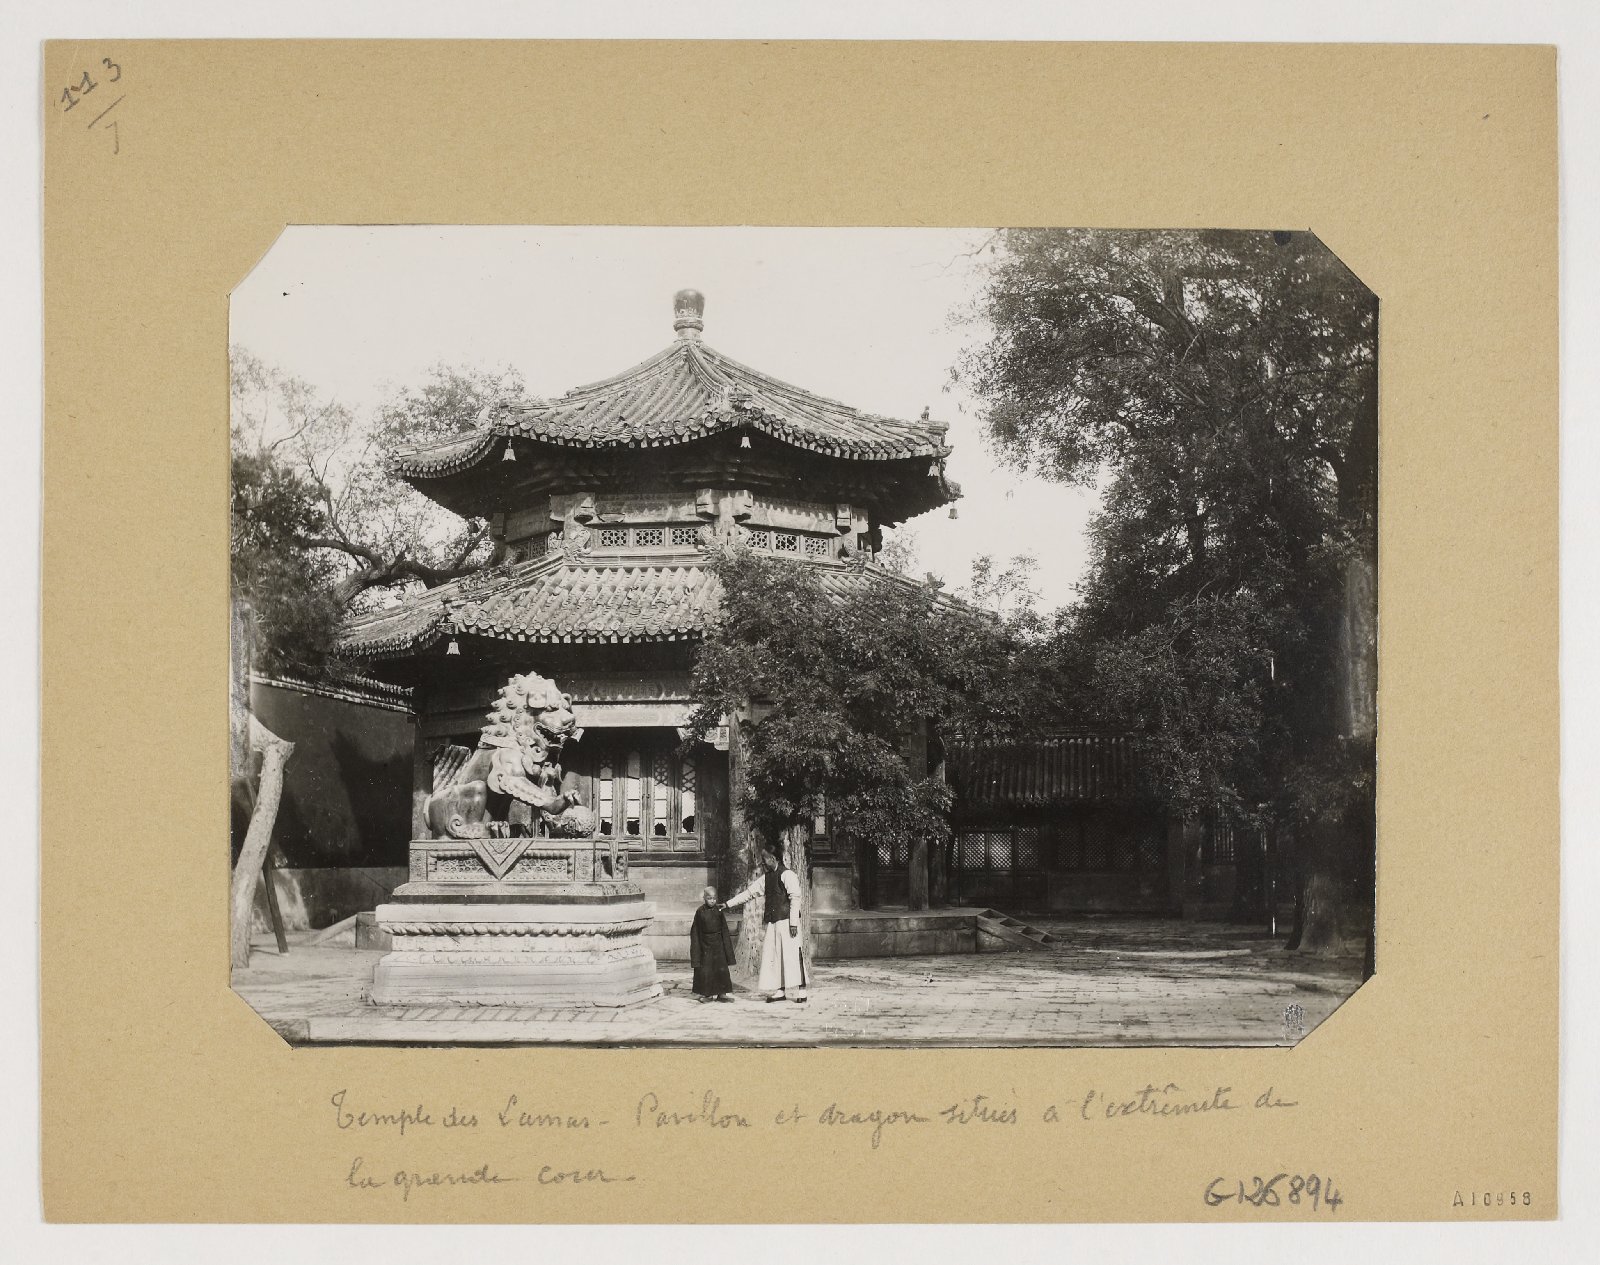 113
7
Temple des Lamas - Pavillon et dragon situés à l'extrêmité de
la grande cour.
G126894
A10958